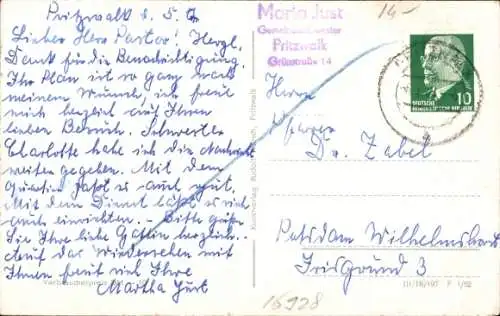 Pritzwalk d. 5. 9.
Lieber Herr Pastor! Herzl.
Dank für die Benachrichtigung.
Ihr Plan ist so ganz nach
meinem Wunsch, ich freue
mich herzlich auf Ihren
lieben Besuch. Schwester
Charlotte habe ich die Nachricht
weiter gegeben. Mit dem
Quartier paßt es auch gut.
Mit dem Dienst läßt es sich
auch einrichten. - Bitte grüßen
Sie Ihre liebe Gattin herzlich.
Auf das Wiedersehen mit
Ihnen freut sich Ihre
Martha Just
Maria Just
Gemeindeschwester
Pritzwalk
Grünstraße 14
14-
DEUTSCHE
DEMOKRATISCHE REPUBLIK
10
Herrn
Pfarrer
Dr. Zabel
Potsdam Wilhelmshorst
Irisgrund 3
III/18/197 F 1/62
16928